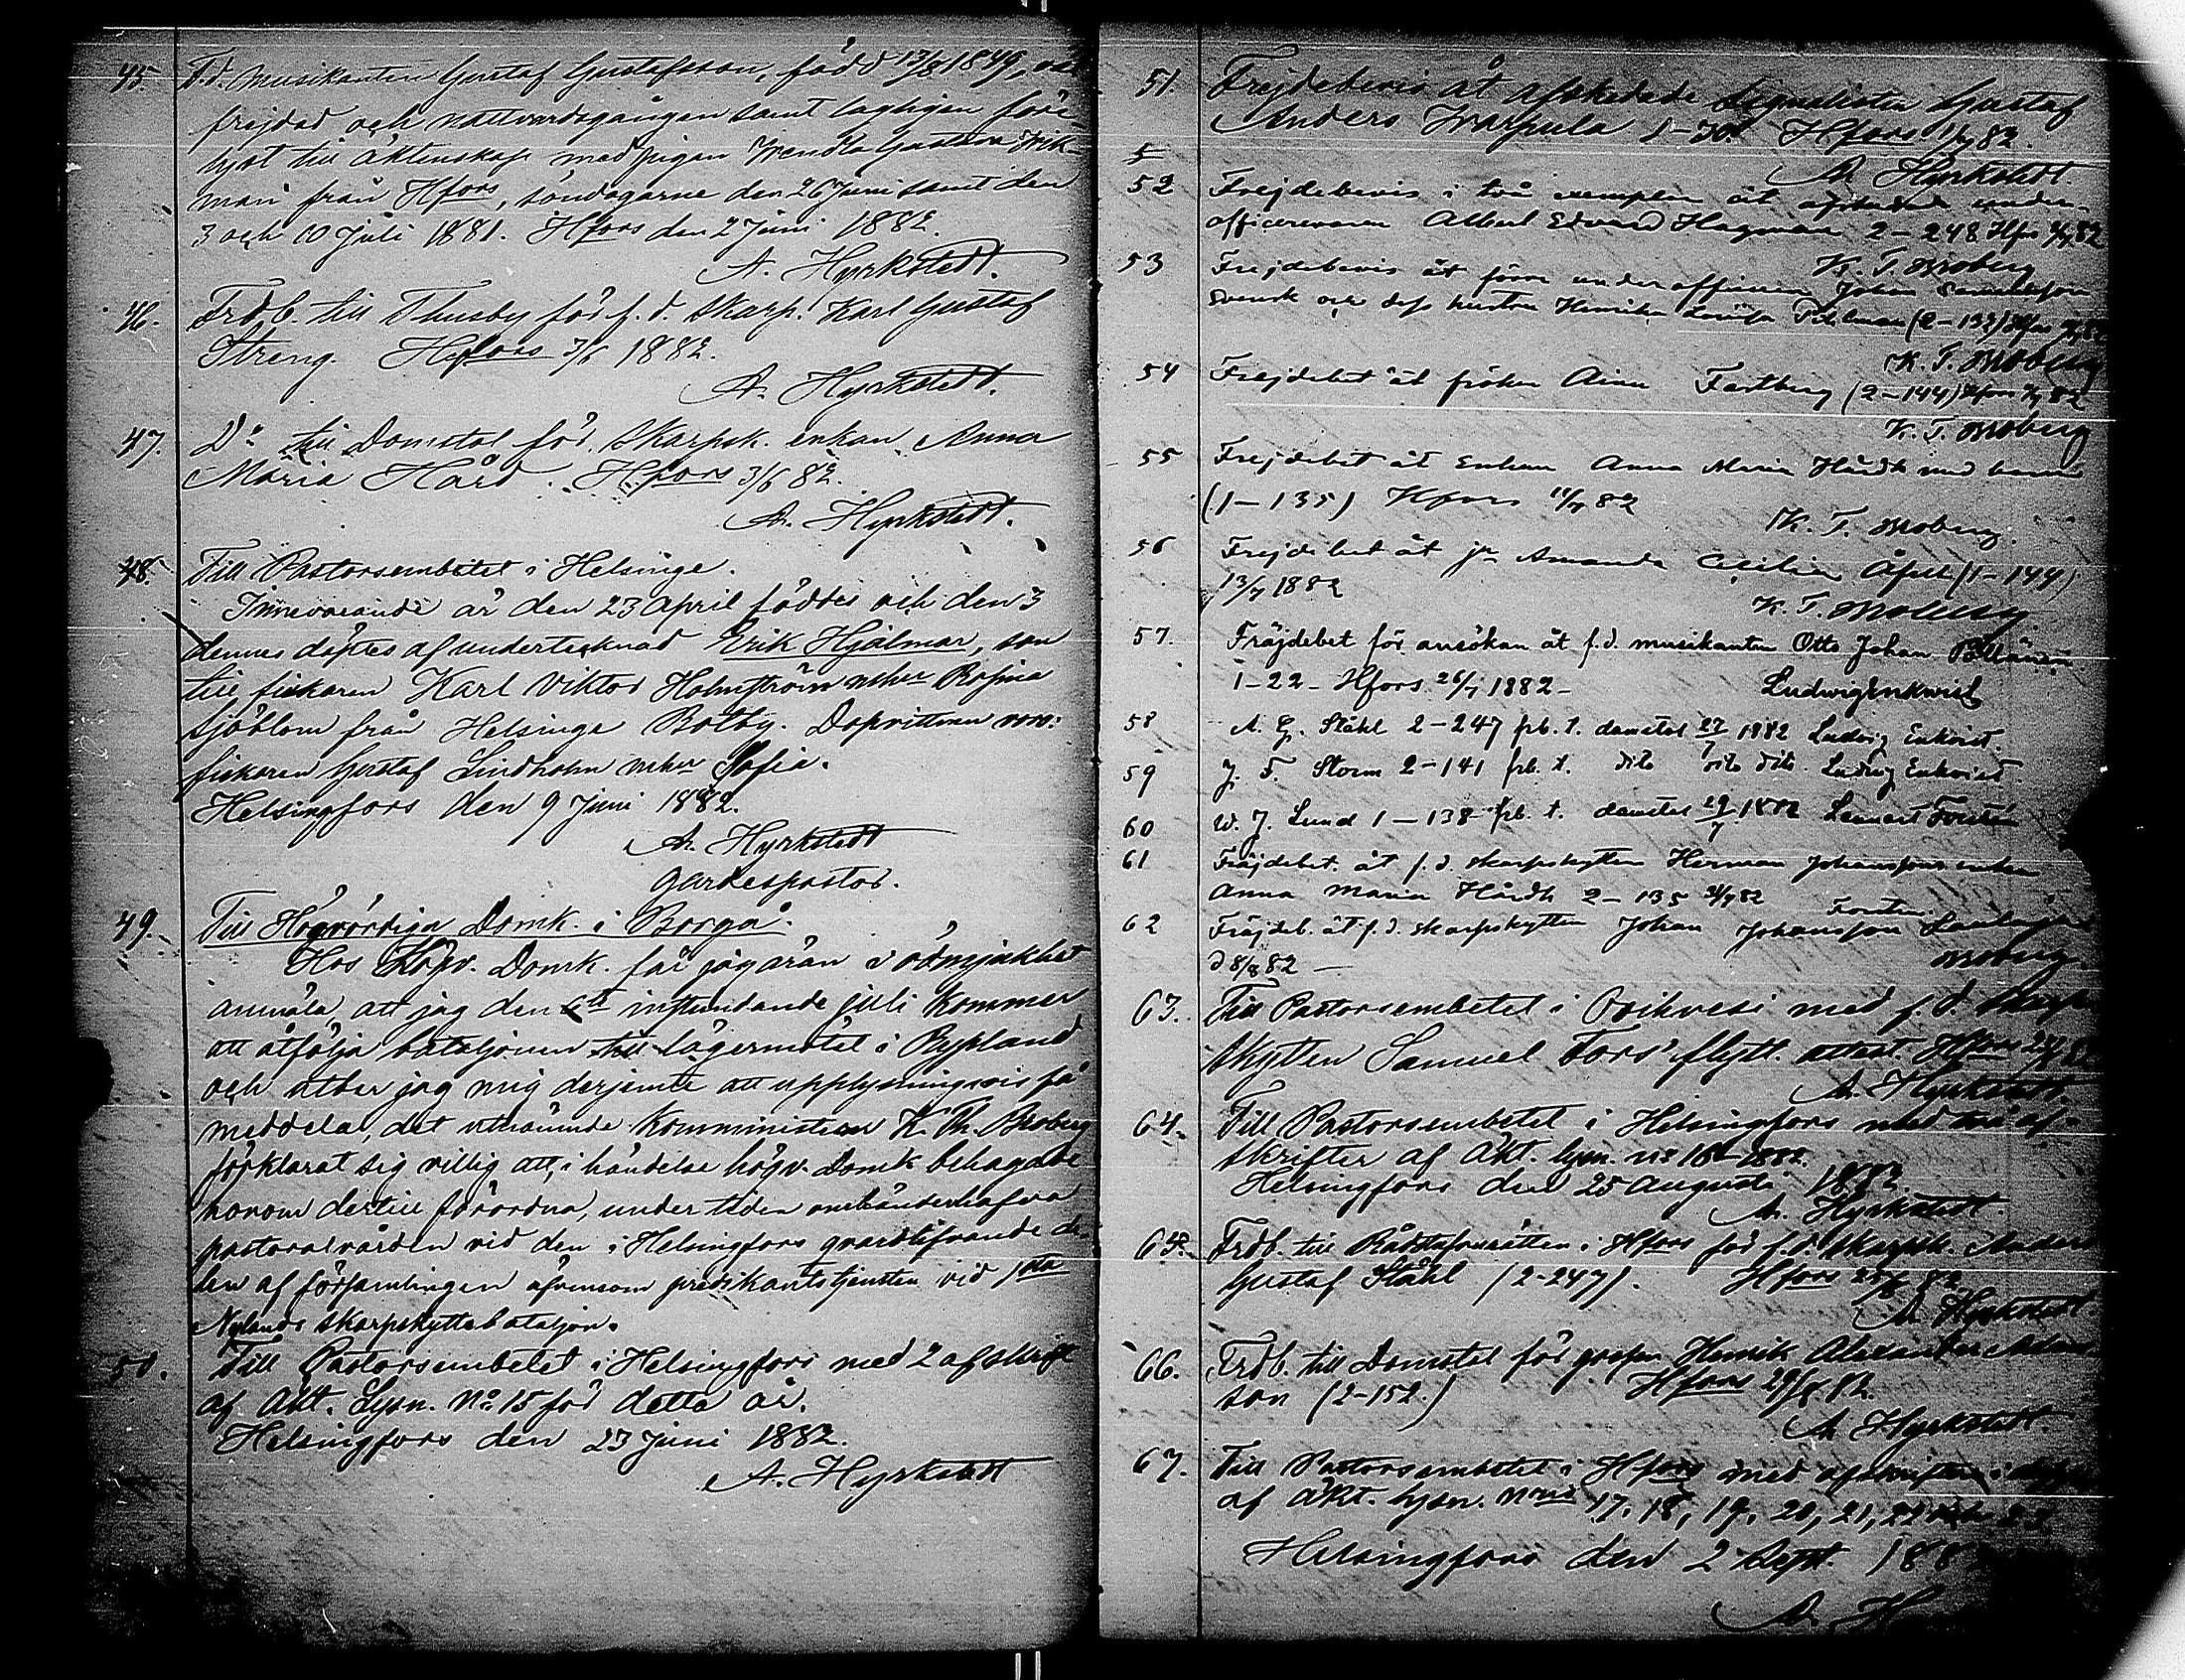 45. F.d. Musikanten Gustaf Gustafsson, född 17/8 1849, väl
frejdad och nattvardsgången samt lagligen före
lyst till äktenskap med pigan Wendla Gustava Wik-
man från Hfors, söndagarne den 26 Juni samt den
3 och 10 Juli 1881. Hfors den 2 Juni 1882.
A. Hyrkstedt.
46. Frdb. till Thusby för f. d. skarp. Karl Gustaf
Streng. Hfors 3/6 1882.
A. Hyrkstedt.
47. D:o till Domstol för skarpsk. enkan Anna
Maria Hård. Hfors 3/6 82.
A. Hyrkstedt.
48. Till Pastorsembetet i Helsinge.
Innevarande år den 23 April föddes och den 3
dennes döptes af undertecknad Erik Hjalmar, son
till fiskaren Karl Viktor Holmström och hu Rosina
Sjöblom från Helsinge Botby. Dopvittnen voro:
fiskaren Gustaf Lindholm och hu Sofia.
Helsingfors den 9 Juni 1882.
A. Hyrkstedt
Gardespastor.
49. Till Högvördiga Domk. i Borgå.
Hos Högv. Domk. får jag äran i ödmjukhet
anmäla, att jag den 6te instundande juli kommer
att åtfölja bataljonen till lägermötet i Ryssland
och utber jag mig derjemte att upplysningsvis få
meddela, det utnämnde Kommministern K. Th. Broberg
förklarat sig villig att, i händelse högv. Domk. behagade
honom dertill förordna, under tiden omhänderhafva
pastoralvården vid den i Helsingfors qvarblifvande de-
len af församlingen äfvensom predikantstjensten vid 1sta
Nylands skarpskyttebataljon.
50. Till Pastorsembetet i Helsingfors med 2 afskrift
af Äkt. Lysn. No 15 för detta år.
Helsingfors den 23 Juni 1882.
A. Hyrkstedt
51. Frejdebevis åt afskedade Signalisten Gustaf
Anders Hfors 1/7 82.
A. Hyrkstedt.
52 Frejdebevis i två exemplar åt afskedade under-
officeraren Albert Edvard Hagman 2-248 Hfors 82
K. T. Broberg
53 Frejdebevis åt förre underofficeren Johan Samuelsson
Svensk och dess hustru Henrika Lovisa (2-132) Hfors
K. T. Broberg
54 Frejdebet åt fröken Aina Fastberg (2-144) Hfors 82
K. T. Broberg
55 Frejdebet åt Enkan Anna Maria Hårdh med barn
(1-135) Hfors 11/7 82
K. T. Broberg.
56 Frejdebet åt jn Amanda Cecilia (1-144)
13/7 1882
K. T. Broberg
57. Fräjdebet för ansökan åt f.d. musikanten Otto Johan Pöllänen
1-22- Hfors 26/7 1882-
Ludwig Enkwist
58 A. G. Ståhl 2-247 frb. t. domstol 27/7 1882 Ludvig Enkvist.
59 J. F. Storm 2-141 frb. t. dito dito dito Ludvig Enkvist.
60 W. J. Lund 1-138 frb. t. domstol 29/7 1882 Lennart Forstén
61 Fräjdebet. åt f.d. skarpskytten Herman Johanssons enka
Anna Maria Hårdh 2-135 31/7 82
Forstén.
62 Fräjdeb. åt f.d. skarpskytten Johan Johansson
d 8/8 82 -
Broberg.
63. Till Pastorsembetet i med f. d. skarp
skytten Samuel Fors' flytt. attest. Hfors
A. Hyrkstedt.
64. Till Pastorsembetet i Helsingfors med två af-
skrifter af Äkt. lysn. No 16 1882.
Helsingfors den 25 augusti 1882
A. Hyrkstedt.
65. Frdb. till Rådstufvurätten i Hfors för f.d. skarpsk. Anders
Gustaf Ståhl (2-247). Hfors 82
A. Hyrkstedt
66. Frdb. till Domstol för Henrik Alexander Adam-
son (2-152.) Hfors 29/8 82.
A. Hyrkstedt.
67. Till Pastorsembetet i Hfors med afskrifter
af Äkt. lysn. 17, 18, 19, 20, 21, 22 och 23.
Helsingfors den 2 Sept. 188
A. H